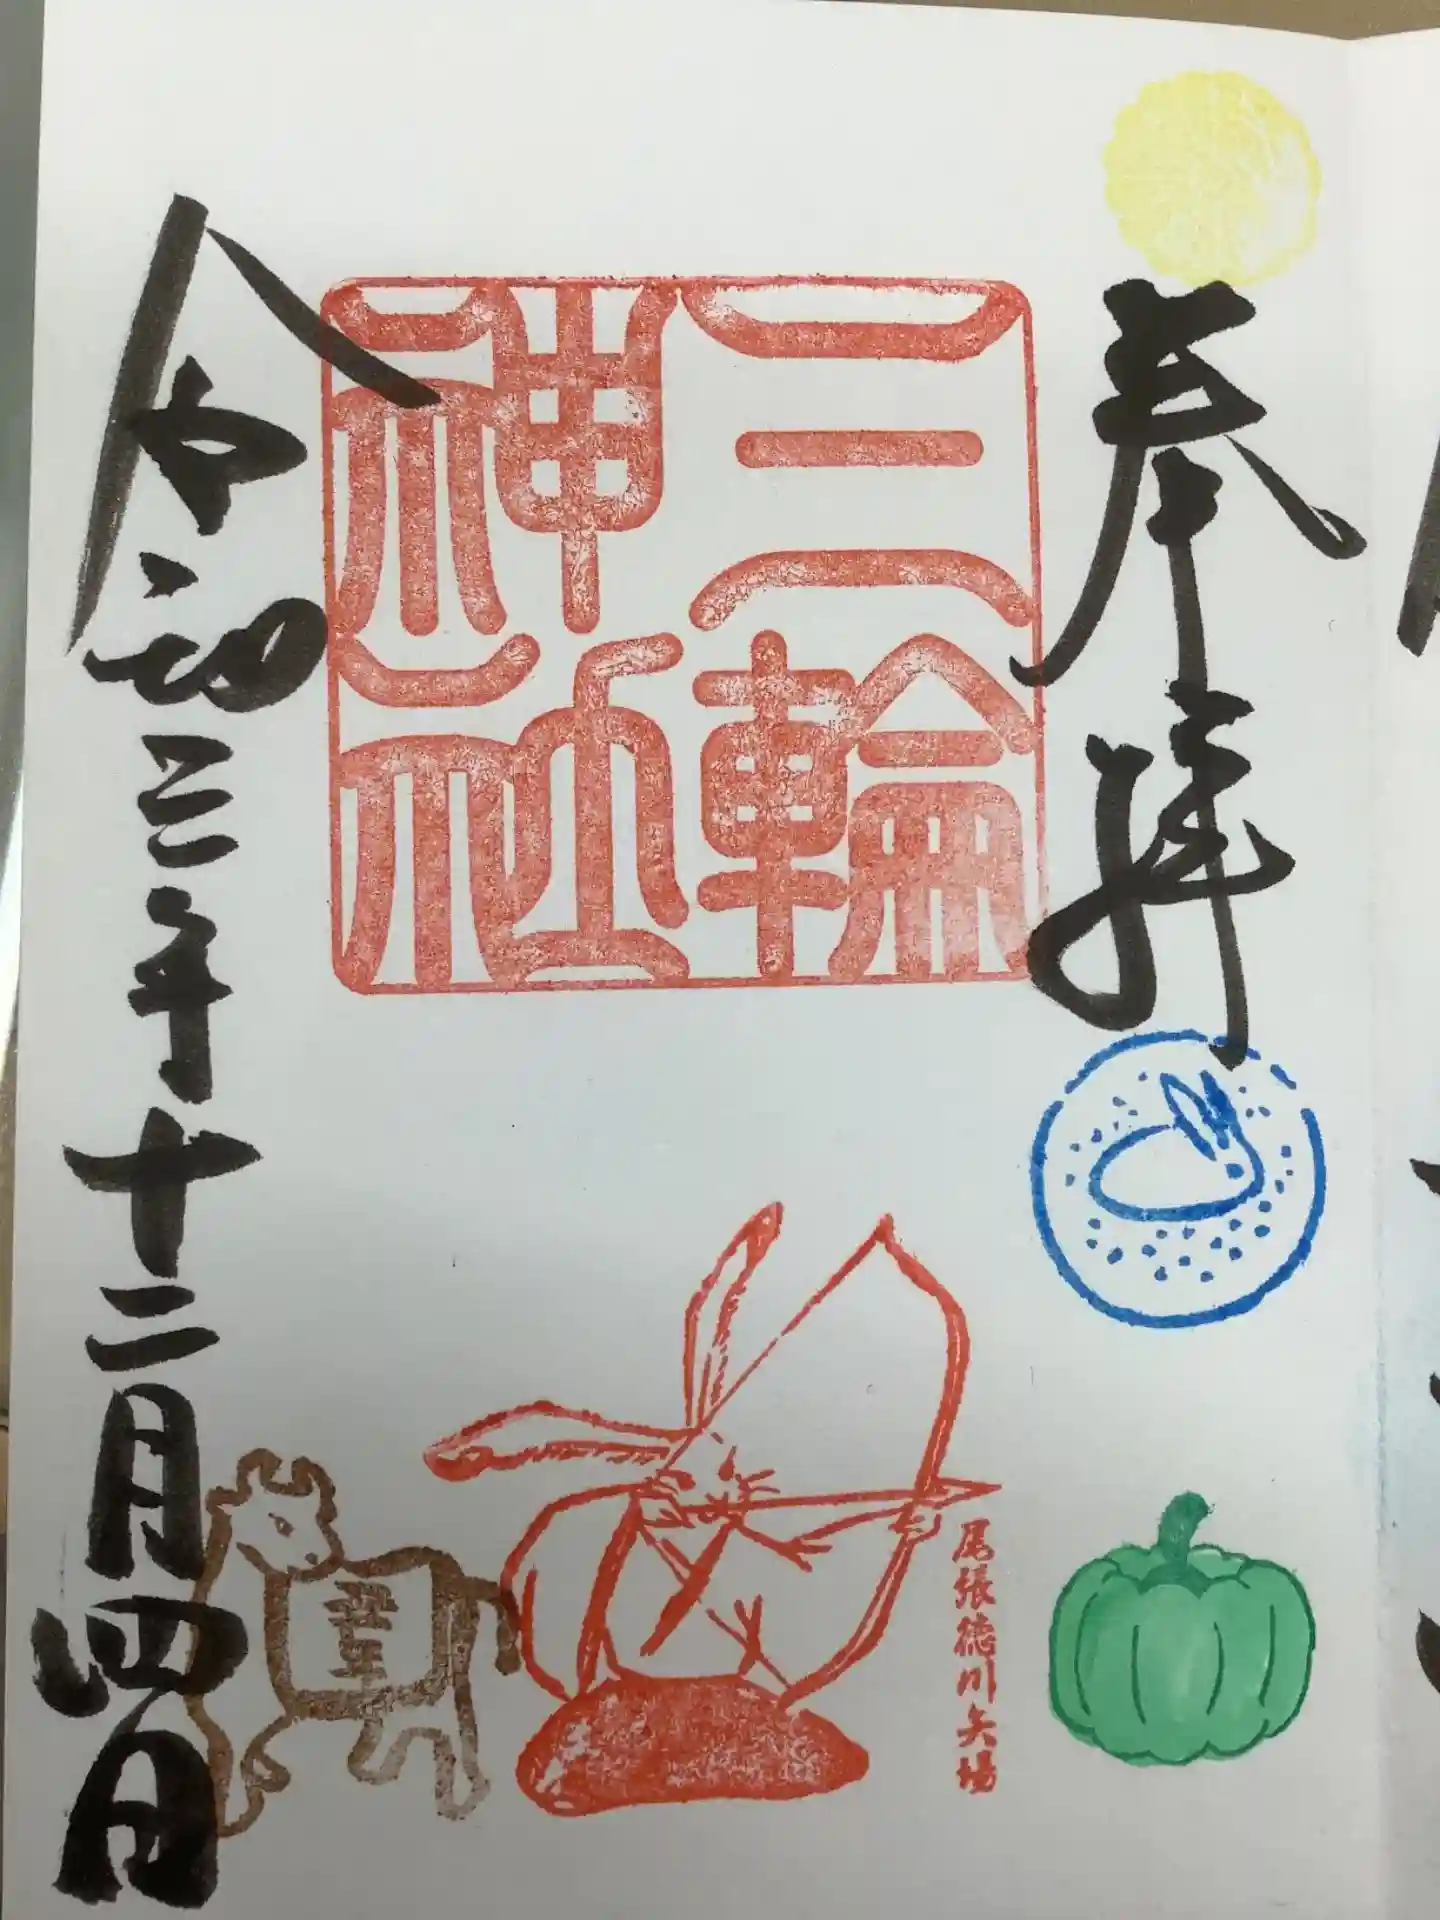 奉拝
三輪
神社
尾張徳川矢場
令和三年十二月四日